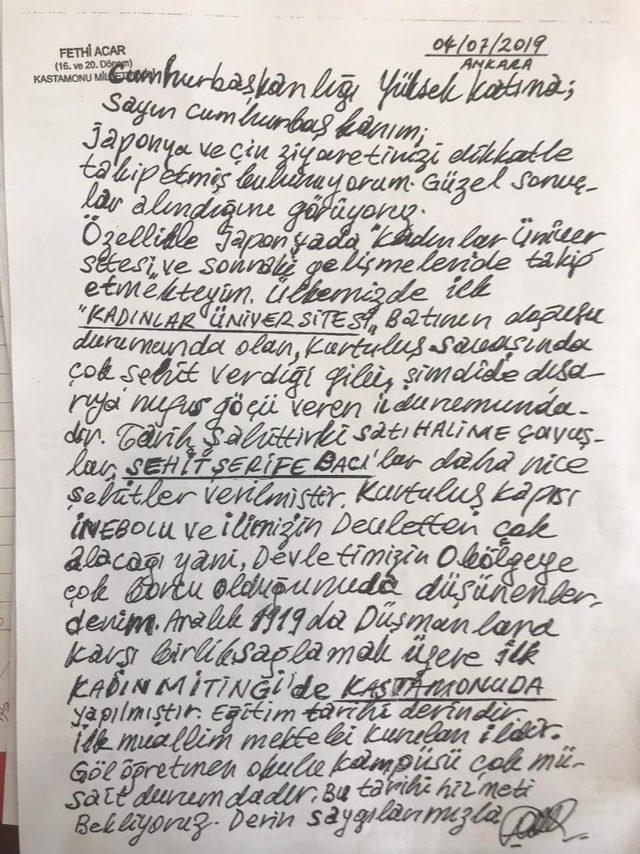 FETHİ ACAR
(16. ve 20. Dönem)
04/07/2019
ANKARA
Cumhurbaşkanlığı Yüksek Katına;
Sayın cumhurbaşkanım;
Japonya ve Çin ziyaretinizi dikkatle
takip etmiş bulunuyorum. Güzel sonuç-
lar alındığını görüyoruz.
Özellikle Japonyada "Kadınlar Üniver
sitesi, ve sonraki gelişmeleride takip
etmekteyim. Ülkemizde ilk
"KADINLAR ÜNİVERSİTESİ,, Batının doğusu
durumunda olan, Kurtuluş savaşında
çok şehit verdiği gibi, şimdide dışa
rıya nufus göçü veren il durumunda-
dır. Tarih Şahittirki HALİME Çavuş-
lar, ŞEHİT ŞERİFE BACI'lar daha nice
şehitler verilmiştir. Kurtuluş kapısı
İNEBOLU ve ilimizin Devletten çok
alacağı yani, Devletimizin O bölgeye
çok borcu olduğunuda düşünenler-
denim. Aralık 1919 da Düşmanlara
karşı birlik sağlamak üzere ilk
KADIN MİTİNGİ'de KASTAMONUDA
yapılmıştır. Eğitim tarihi derindir.
İlk muallim mektebi kurulan ildir.
Göl öğretmen okulu kampüsü çok mü-
sait durumdadır. Bu tarihi hizmeti
Bekliyoruz. Derin saygılarımızla